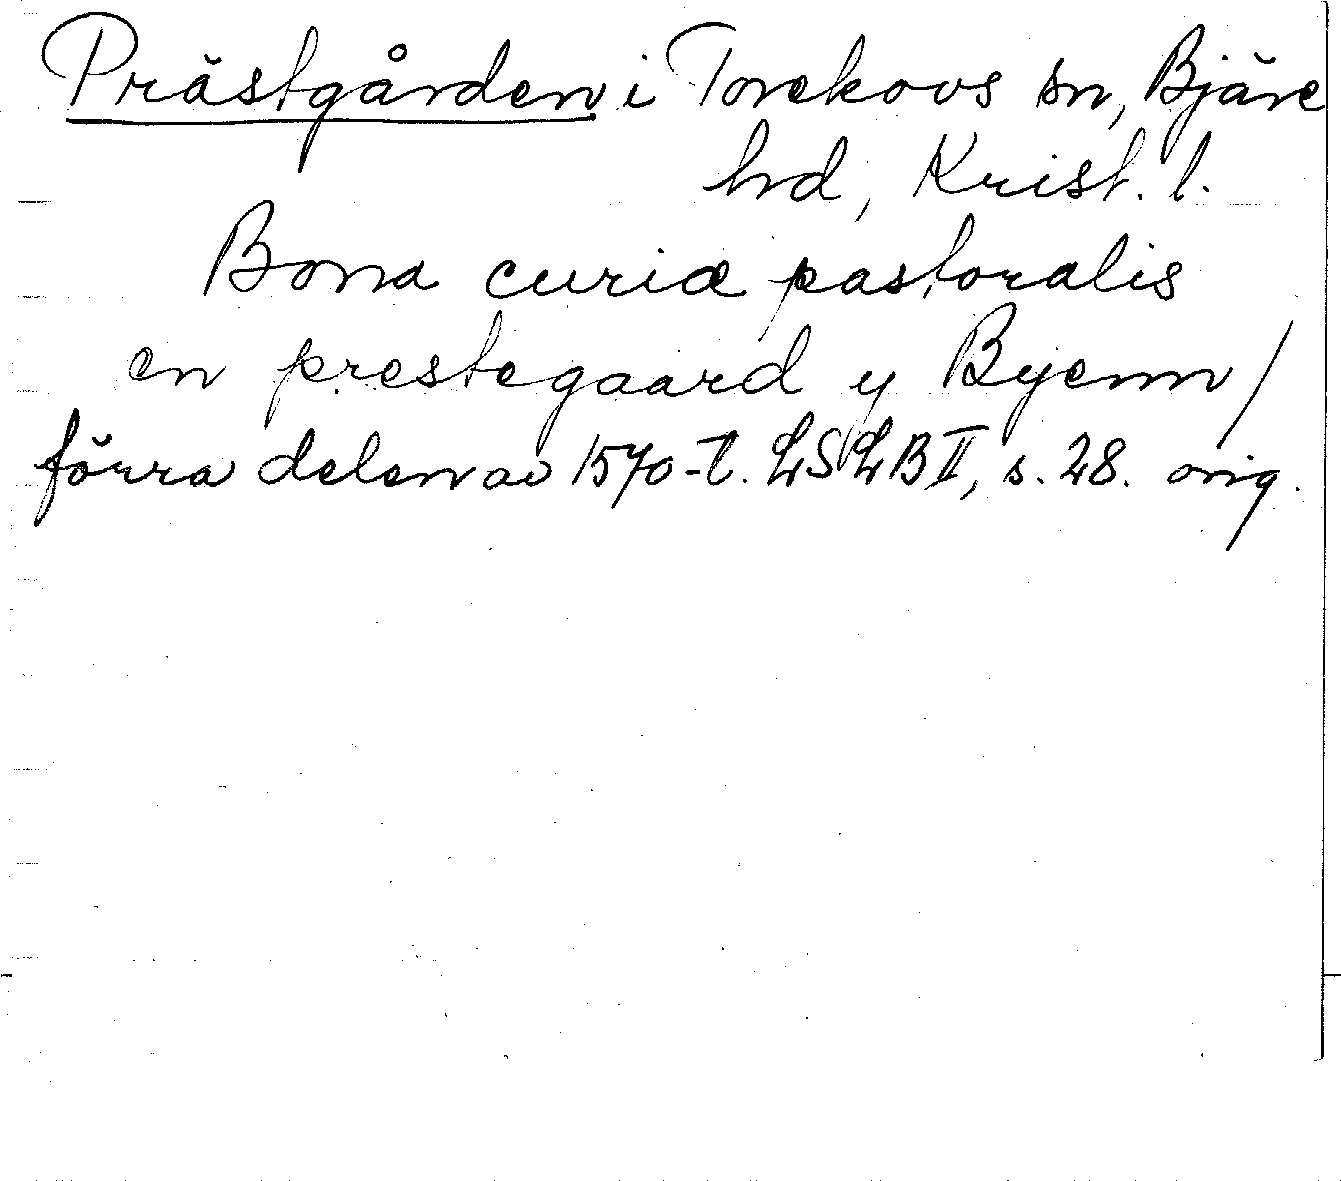 Prästgården i Torekovs sn, Bjäre
hd, Krist. l.
Bona curiæ pastoralis
en prestegaard y Byenn /
förra delen av 1570-t. LSLB II, s. 28. orig. /